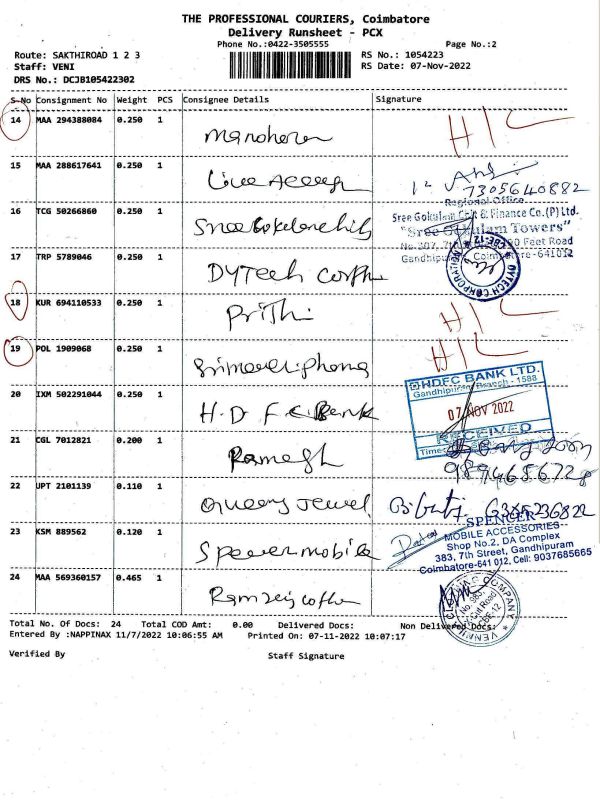 THE PROFESSIONAL COURIERS, Coimbatore
Delivery Runsheet - PCX
Phone No.:0422-3505555 Page No.:2
Route: SAKTHIROAD 1 2 3 RS No.: 1054223
Staff: VENI RS Date: 07-Nov-2022
DRS No.: DCJB105422302
S-No Consignment No Weight PCS Consignee Details Signature
14 MAA 294388084 0.250 1
Manoharan
15 MAA 288617641 0.250 1
7305640882
Regional Office
16 TCG 50266860 0.250 1
Sree Gokulam Chit & Finance Co.(P) Ltd.
"Sree Gokulam Towers"
17 TRP 5789046 0.250 1
Coimbatore-641012
DYTech
DYTECH CORPORATION
18 KUR 694110533 0.250 1
Prithi
19 POL 1909068 0.250 1
HDFC BANK LTD.
Gandhipuram Branch - 1588
20 IXM 502291044 0.250 1
07 NOV 2022
H.D.F.C Bank
RECEIVED
21 CGL 7012821 0.200 1
Ramesh
22 UPT 2101139 0.110 1
Queens Jewel
SPENCER
MOBILE ACCESSORIES
23 KSM 889562 0.120 1
Shop No.2, DA Complex
383, 7th Street, Gandhipuram
Coimbatore-641 012, Cell: 9037685665
24 MAA 569360157 0.465 1
Total No. Of Docs: 24 Total COD Amt: 0.00 Delivered Docs: Non Delivered Docs:
Entered By :NAPPINAX 11/7/2022 10:06:55 AM Printed On: 07-11-2022 10:07:17
Verified By Staff Signature